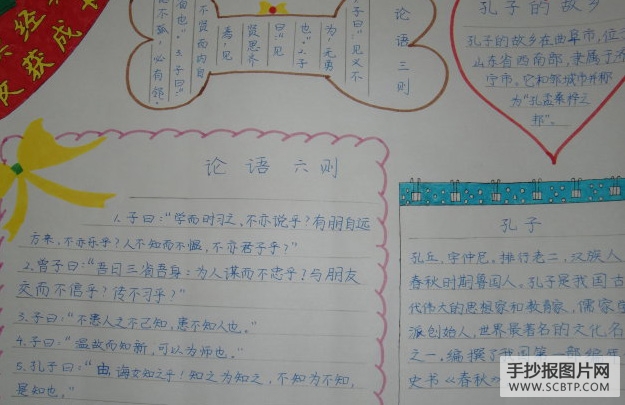 论语三则
子曰："见义不
为，无勇
也"。2.子
曰："见
贤思齐
焉，见
不贤而内自
省也"。3.子曰：
不孤，必有邻
孔子的故乡
孔子的故乡在曲阜市，位于
山东省西南部，隶属于济
宁市。它和邹城市并称
为"孔孟桑梓之
邦"。
论语六则
1.子曰："学而时习之，不亦说乎？有朋自远
方来，不亦乐乎？人不知而不愠，不亦君子乎？"
2.曾子曰："吾日三省吾身：为人谋而不忠乎？与朋友
交而不信乎？传不习乎？"
3.子曰："不患人之不己知，患不知人也。"
4.子曰："温故而知新，可以为师也。"
5.孔子曰："由，诲女知之乎！知之为知之，不知为不知，
是知也。"
孔子
孔丘，字仲尼，排行老二，汉族人，
春秋时期鲁国人。孔子是我国古
代伟大的思想家和教育家，儒家学
派创始人，世界最著名的文化名
之一。编撰了我国第一部编年
史书《春秋》
手抄报图片网
WWW.SCBTP.COM